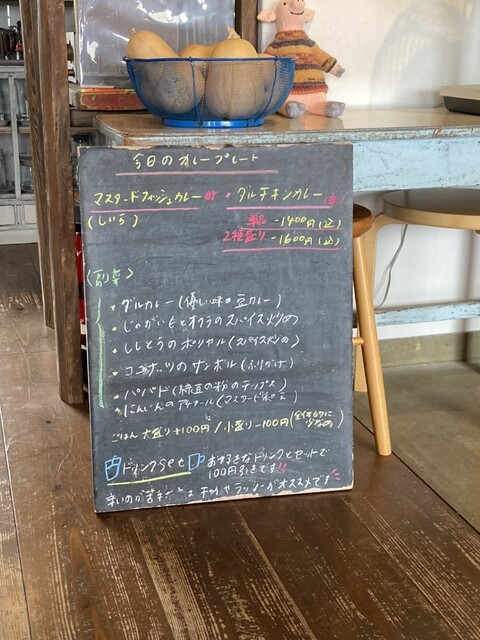 今日のカレープレート
マスタードフィッシュカレー or ・ダルチキンカレー(辛)
(しいら)
単品 -1400円(込)
2種盛り -1600円(込)
〈副菜〉
・ダルカレー(優しい味の豆カレー)
・じゃがいもとオクラのスパイス炒め
・ししとうのポリヤル(スパイス炒め)
・ココナッツのサンボル(ふりかけ)
・パパド(緑豆の粉のチップス)
・にんじんのアチャール(マスタード
ごはん 大盛り+100円 / 小盛り-100円(全体的に少なめ)
ドリンクset お好きなドリンクとセットで
100円引きです!!
辛いのが苦手な は チャイやラッシーがオススメです